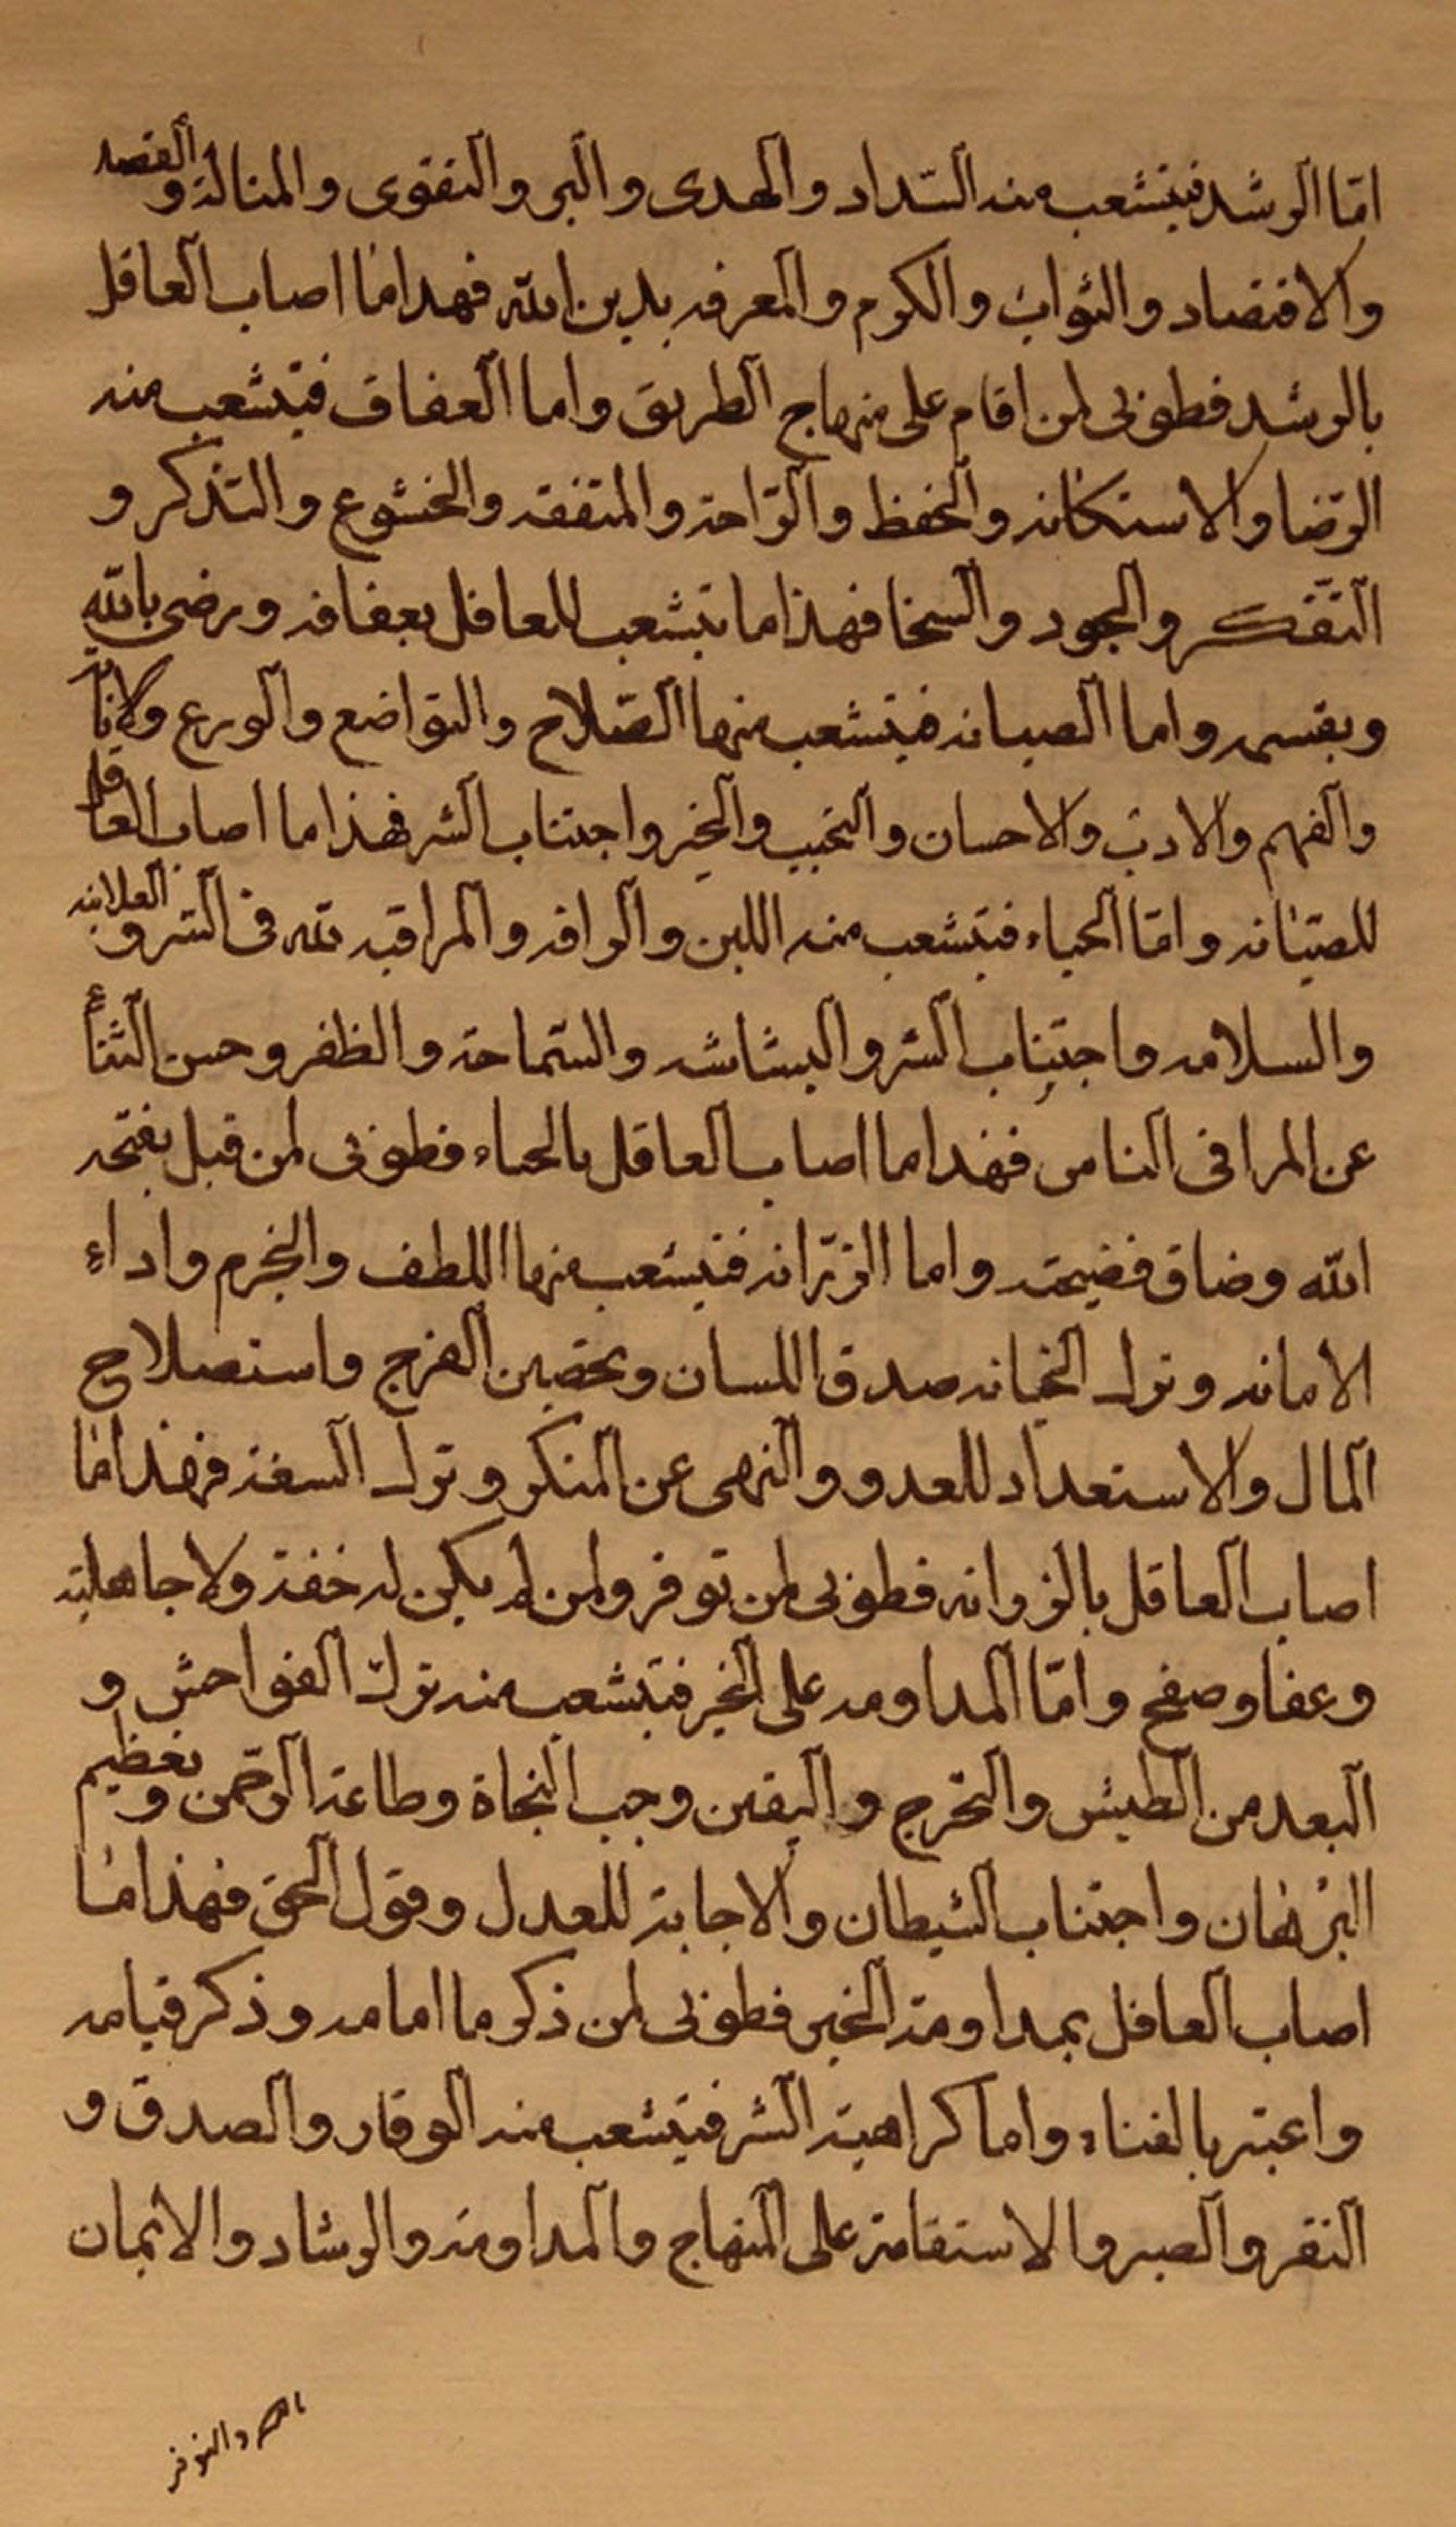 امّا الرشد فيتشعب منه السّداد والهدى والبر والتقوى والمنالة والقصد
والاقتصاد والثواب والكرم والمعرفه بدين الله فهذا ما اصاب العاقل
بالرشد فطوبى لمن اقام على منهاج الطريق واما العفاف فيتشعب منه
الرّضا والاستكانه والحفظ والرّاحة والمتفقه والخشوع والتذكر و
التفكر والجود والسخا فهذا ما يتشعب للعاقل بعفافه ورضى بالله
وبقسمه واما الصيانه فيتشعب منها الصّلاح والتواضع والورع والانابه
والفهم والادب والاحسان والتحبب والخير واجتناب الشر فهذا ما اصاب العاقل
للصيانه وامّا الحياء فيتشعب منه اللين والرافه والمراقبه لله فى السر والعلانيه
والسلامه واجتناب الشر والبشاشه والسّماحة والظفر وحسن الثناء
عن المرا فى الناس فهذا ما اصاب العاقل بالحياء فطوبى لمن قبل بفتحه
الله وضاق فضيحته واما الرّزانه فيتشعب منها اللطف والخرم واداء
الامانه وترك الخيانه صدق اللسان وتحصين الفرج واستصلاح
المال والاستعداد للعدو والنهى عن المنكر وترك السفه فهذا ما
اصاب العاقل بالرزانه فطوبى لمن توفر ولمن لم يكن له خفة ولا جاهلية
وعفا وصفح وامّا المداومه على الخير فيتشعب منه ترك الفواحش و
البعد من الطيش والتحرج واليقين وحب النجاة وطاعة الرّحمن وتعظيم
البرهان واجتناب الشيطان والاجابة للعدل وقول الحق فهذا ما
اصاب العاقل بمداومة الخير فطوبى لمن ذكر ما امامه وذكر قيامه
واعتبر بالفناء واما كراهية الشر فيتشعب منه الوقار والصدق و
النقر والصبر والاستقامة على المنهاج والمداومة والرشاد والايمان
والتوفر